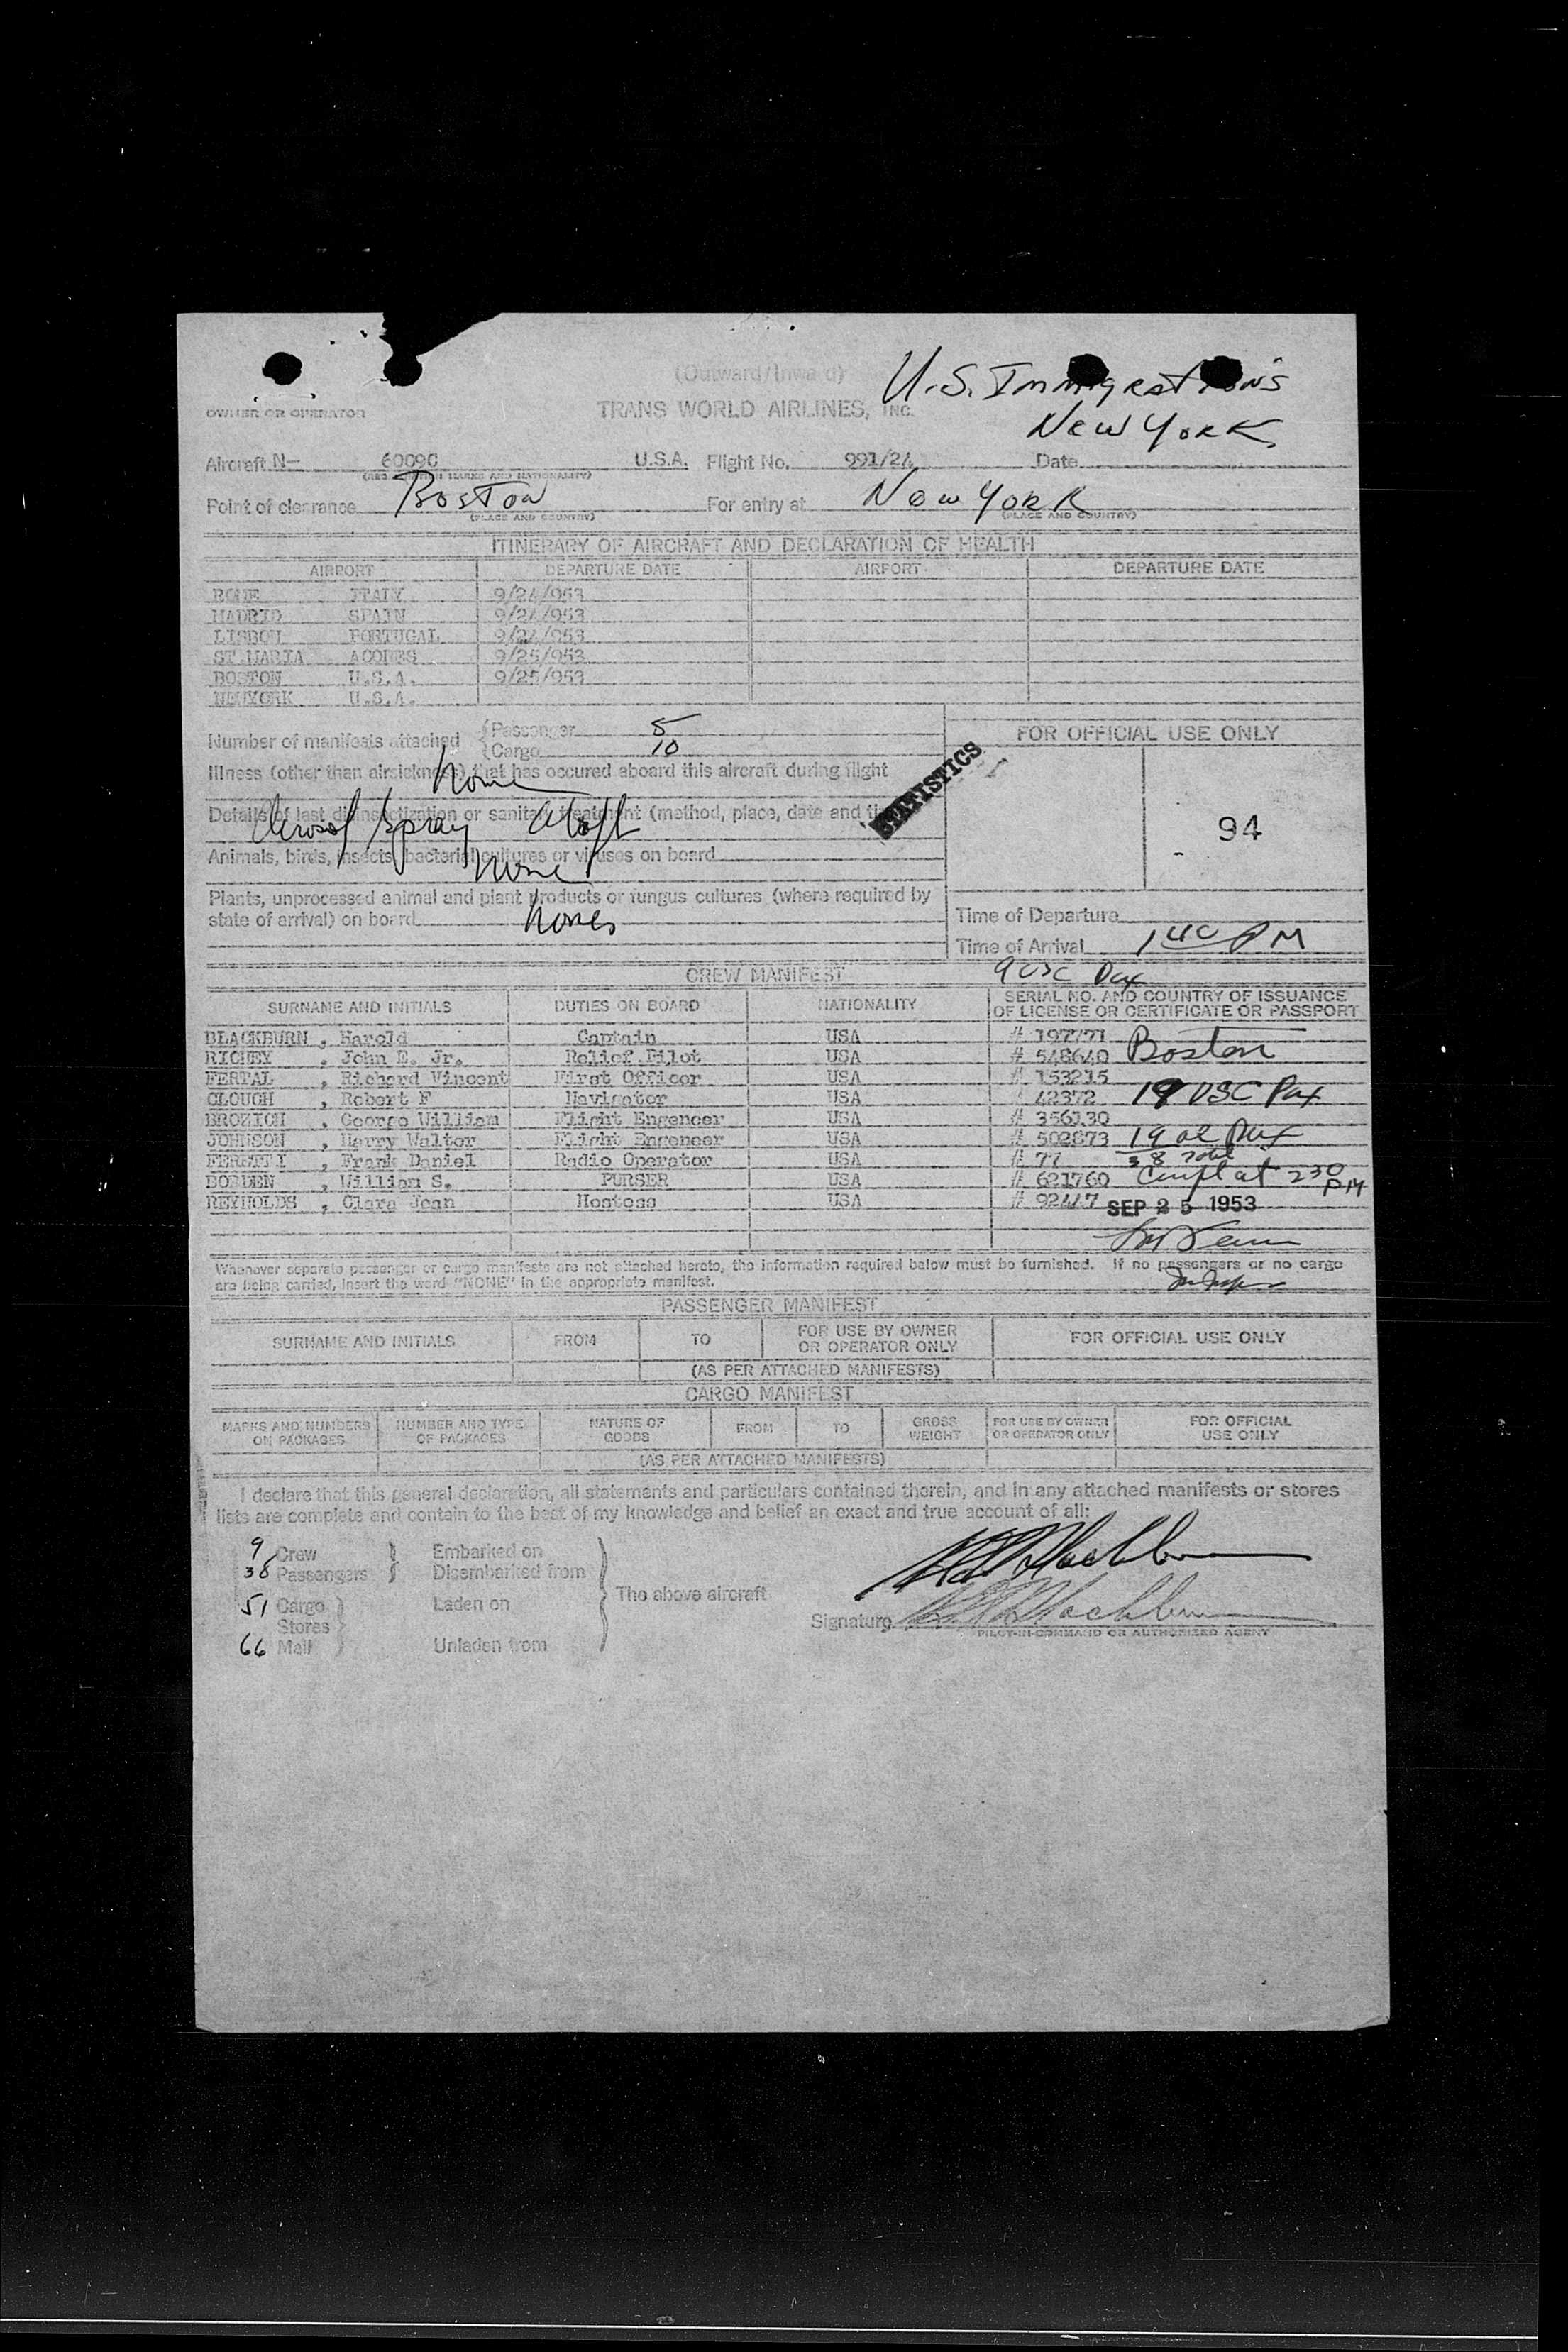 (Outward/Inward)
U.S. Immigrations
New York
OWNER OR OPERATOR
TRANS WORLD AIRLINES, INC.
Aircraft N- 6009C U.S.A. Flight No. 991/24 Date
(REGISTRATION MARKS AND NATIONALITY)
Point of clearance Boston For entry at New York
(PLACE AND COUNTRY) (PLACE AND COUNTRY)
ITINERARY OF AIRCRAFT AND DECLARATION OF HEALTH
AIRPORT DEPARTURE DATE AIRPORT DEPARTURE DATE
ROME ITALY 9/24/953
MADRID SPAIN 9/24/953
LISBON PORTUGAL 9/24/953
ST.MARIA ACORES 9/25/953
BOSTON U.S.A. 9/25/953
NEWYORK U.S.A.
Number of manifests attached { Passenger 5
{ Cargo 10
FOR OFFICIAL USE ONLY
STATISTICS
94
Illness (other than airsickness) that has occured aboard this aircraft during flight
None
Details of last disinsectization or sanitary treatment (method, place, date and
Aerosol Spray Aloft
Animals, birds, insects, bacterial cultures or viruses on board
None
Plants, unprocessed animal and plant products or fungus cultures (where required by
state of arrival) on board
Time of Departure
Time of Arrival 1 40 PM
CREW MANIFEST 9 USC Pax
SURNAME AND INITIALS DUTIES ON BOARD NATIONALITY SERIAL NO. AND COUNTRY OF ISSUANCE
OF LICENSE OR CERTIFICATE OR PASSPORT
BLACKBURN , Harold Captain USA # 197771
RICHEY , John E. Jr. Relief Pilot USA # 548640 Boston
FERTAL , Richard Vincent First Officer USA # 153215
CLOUGH , Robert F Navigator USA # 42372 19 USC Pax
BROZICH , George William Flight Engeneer USA # 356130
JOHNSON , Harry Walter Flight Engeneer USA # 502873 19 al Pax
FERETTI , Frank Daniel Radio Operator USA # 77 38 Total
BORDEN , William S. PURSER USA # 621760 Compl at 2 30 PM
REYNOLDS , Clara Jean Hostess USA # 92447 SEP 25 1953
Whenever separate passenger or cargo manifests are not attached hereto, the information required below must be furnished. If no passengers or no cargo
are being carried, insert the word "NONE" in the appropriate manifest.
PASSENGER MANIFEST
SURNAME AND INITIALS FROM TO FOR USE BY OWNER
OR OPERATOR ONLY FOR OFFICIAL USE ONLY
(AS PER ATTACHED MANIFESTS)
CARGO MANIFEST
MARKS AND NUMBERS
ON PACKAGES NUMBER AND TYPE
OF PACKAGES NATURE OF
GOODS FROM TO GROSS
WEIGHT FOR USE BY OWNER
OR OPERATOR ONLY FOR OFFICIAL
USE ONLY
(AS PER ATTACHED MANIFESTS)
I declare that this general declaration, all statements and particulars contained therein, and in any attached manifests or stores
lists are complete and contain to the best of my knowledge and belief an exact and true account of all:
9 Crew Embarked on
38 Passengers Disembarked from
The above aircraft
51 Cargo Laden on
Stores
66 Mail Unladen from
Signature
PILOT-IN-COMMAND OR AUTHORIZED AGENT